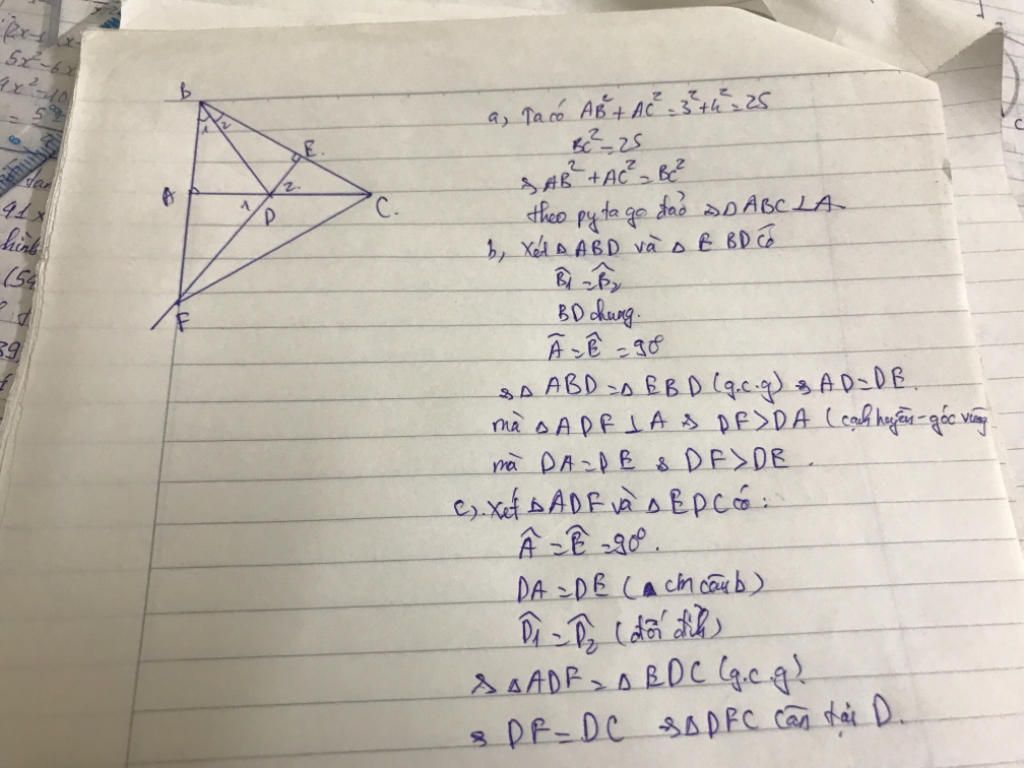 B
1 2
E.
A
2.
1
D
C.
F
a, Ta có AB² + AC² = 3² + 4² = 25
BC² = 25
⇒ AB² + AC² = BC²
theo pytago đảo ⇒ Δ ABC ⊥ A
b, Xét Δ ABD và Δ EBD có
B̂1 = B̂2
BD chung.
Â = Ê = 90°
⇒ Δ ABD = Δ EBD (g.c.g) ⇒ AD = DE.
mà Δ ADF ⊥ A ⇒ DF > DA (cạnh huyền - góc vuông
mà DA = DE ⇒ DF > DE.
c). Xét Δ ADF và Δ EDC có:
Â = Ê = 90°.
DA = DE (cm câu b)
D̂1 = D̂2 (đối đỉnh)
⇒ Δ ADF = Δ EDC (g.c.g)
⇒ DF = DC ⇒ Δ DFC cân tại D.